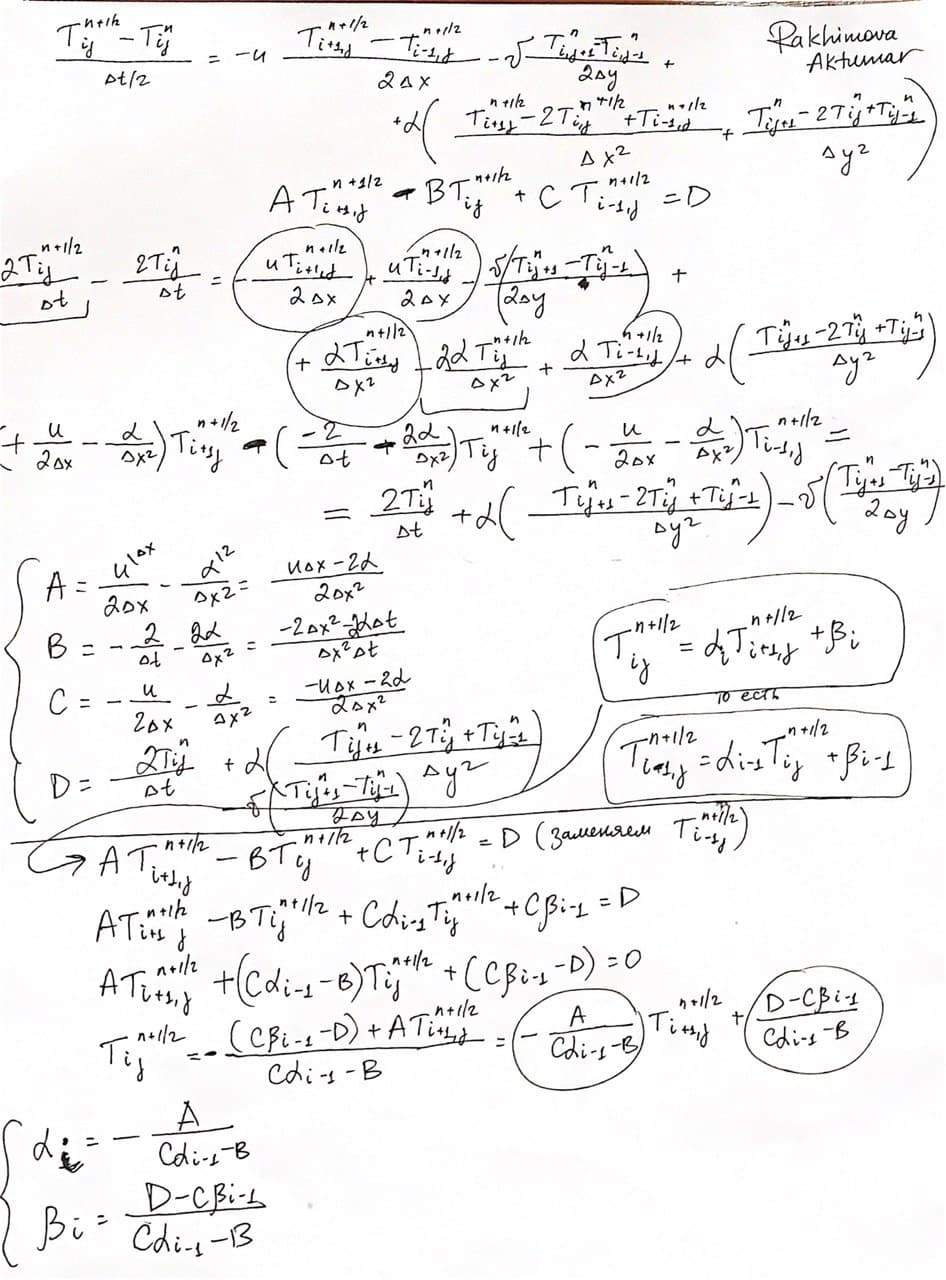 Rakhimova
Aktumar
\frac{T_{ij}^{n+1/2} - T_{ij}^{n}}{Δt/2} = -u \frac{T_{i+1,j}^{n+1/2} - T_{i-1,j}^{n+1/2}}{2Δx} - v \frac{T_{i,j+1}^{n} - T_{i,j-1}^{n}}{2Δy} +
+α( \frac{T_{i+1,j}^{n+1/2} - 2T_{i,j}^{n+1/2} + T_{i-1,j}^{n+1/2}}{Δx^2} + \frac{T_{ij+1}^{n} - 2T_{ij}^{n} + T_{ij-1}^{n}}{Δy^2} )
A T_{i+1,j}^{n+1/2} - B T_{ij}^{n+1/2} + C T_{i-1,j}^{n+1/2} = D
\frac{2T_{ij}^{n+1/2}}{Δt} - \frac{2T_{ij}^{n}}{Δt} = -\frac{u T_{i+1,j}^{n+1/2}}{2Δx} + \frac{u T_{i-1,j}^{n+1/2}}{2Δx} - v( \frac{T_{ij+1}^{n} - T_{ij-1}^{n}}{2Δy} ) +
+ \frac{α T_{i+1,j}^{n+1/2}}{Δx^2} - \frac{2α T_{ij}^{n+1/2}}{Δx^2} + \frac{α T_{i-1,j}^{n+1/2}}{Δx^2} + α( \frac{T_{ij+1}^{n} - 2T_{ij}^{n} + T_{ij-1}^{n}}{Δy^2} )
(+ \frac{u}{2Δx} - \frac{α}{Δx^2}) T_{i+1,j}^{n+1/2} - (\frac{-2}{Δt} + \frac{2α}{Δx^2}) T_{ij}^{n+1/2} + (- \frac{u}{2Δx} - \frac{α}{Δx^2}) T_{i-1,j}^{n+1/2} =
= \frac{2T_{ij}^{n}}{Δt} + α( \frac{T_{ij+1}^{n} - 2T_{ij}^{n} + T_{ij-1}^{n}}{Δy^2} ) - v( \frac{T_{ij+1}^{n} - T_{ij-1}^{n}}{2Δy} )
A = \frac{u^{\Δx}}{2Δx} - \frac{α^{\2}}{Δx^2} = \frac{uΔx - 2α}{2Δx^2}
B = - \frac{2}{Δt} - \frac{2α}{Δx^2} = \frac{-2Δx^2 - 2αΔt}{Δx^2Δt}
C = - \frac{u}{2Δx} - \frac{α}{Δx^2} = \frac{-uΔx - 2α}{2Δx^2}
D = \frac{2T_{ij}^{n}}{Δt} + α( \frac{T_{ij+1}^{n} - 2T_{ij}^{n} + T_{ij-1}^{n}}{Δy^2} )
- v( \frac{T_{ij+1}^{n} - T_{ij-1}^{n}}{2Δy} )
T_{ij}^{n+1/2} = α_i T_{i+1,j}^{n+1/2} + β_i
то есть
T_{i-1,j}^{n+1/2} = α_{i-1} T_{ij}^{n+1/2} + β_{i-1}
→ A T_{i+1,j}^{n+1/2} - B T_{ij}^{n+1/2} + C T_{i-1,j}^{n+1/2} = D (заменяем T_{i-1,j}^{n+1/2})
A T_{i+1 j}^{n+1/2} - B T_{ij}^{n+1/2} + Cα_{i-1} T_{ij}^{n+1/2} + Cβ_{i-1} = D
A T_{i+1,j}^{n+1/2} + (Cα_{i-1} - B) T_{ij}^{n+1/2} + (Cβ_{i-1} - D) = 0
T_{ij}^{n+1/2} = - \frac{(Cβ_{i-1} - D) + A T_{i+1,j}^{n+1/2}}{Cα_{i-1} - B} = (- \frac{A}{Cα_{i-1} - B}) T_{i+1,j}^{n+1/2} + \frac{D - Cβ_{i-1}}{Cα_{i-1} - B}
α_i = - \frac{A}{Cα_{i-1} - B}
β_i = \frac{D - Cβ_{i-1}}{Cα_{i-1} - B}